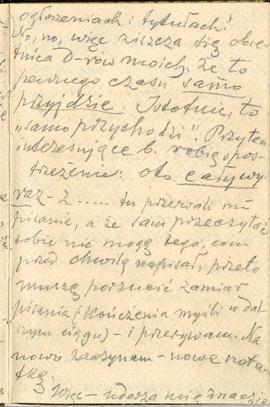 ogłoszeniach i tytułach!
No, no, więc ziszcza się obie-
tnica D-rów moich, że to
pewnego czasu samo
przyjdzie. Istotnie, to
"samo przychodzi". Przytem
interesujące b. robię spos-
trzeżenie: oto cały wy-
raz - z ..... tu przerwali mi
pisanie, a że sam przeczytać
sobie nie mogę tego, com
przed chwilą napisał, przeto
muszę porzucić zamiar
pisania (kończenia myśli w dal-
szym ciągu) - i przerywam. Na
nowo zaczynam - nowe nota-
tkę.
Więc - uderza mię